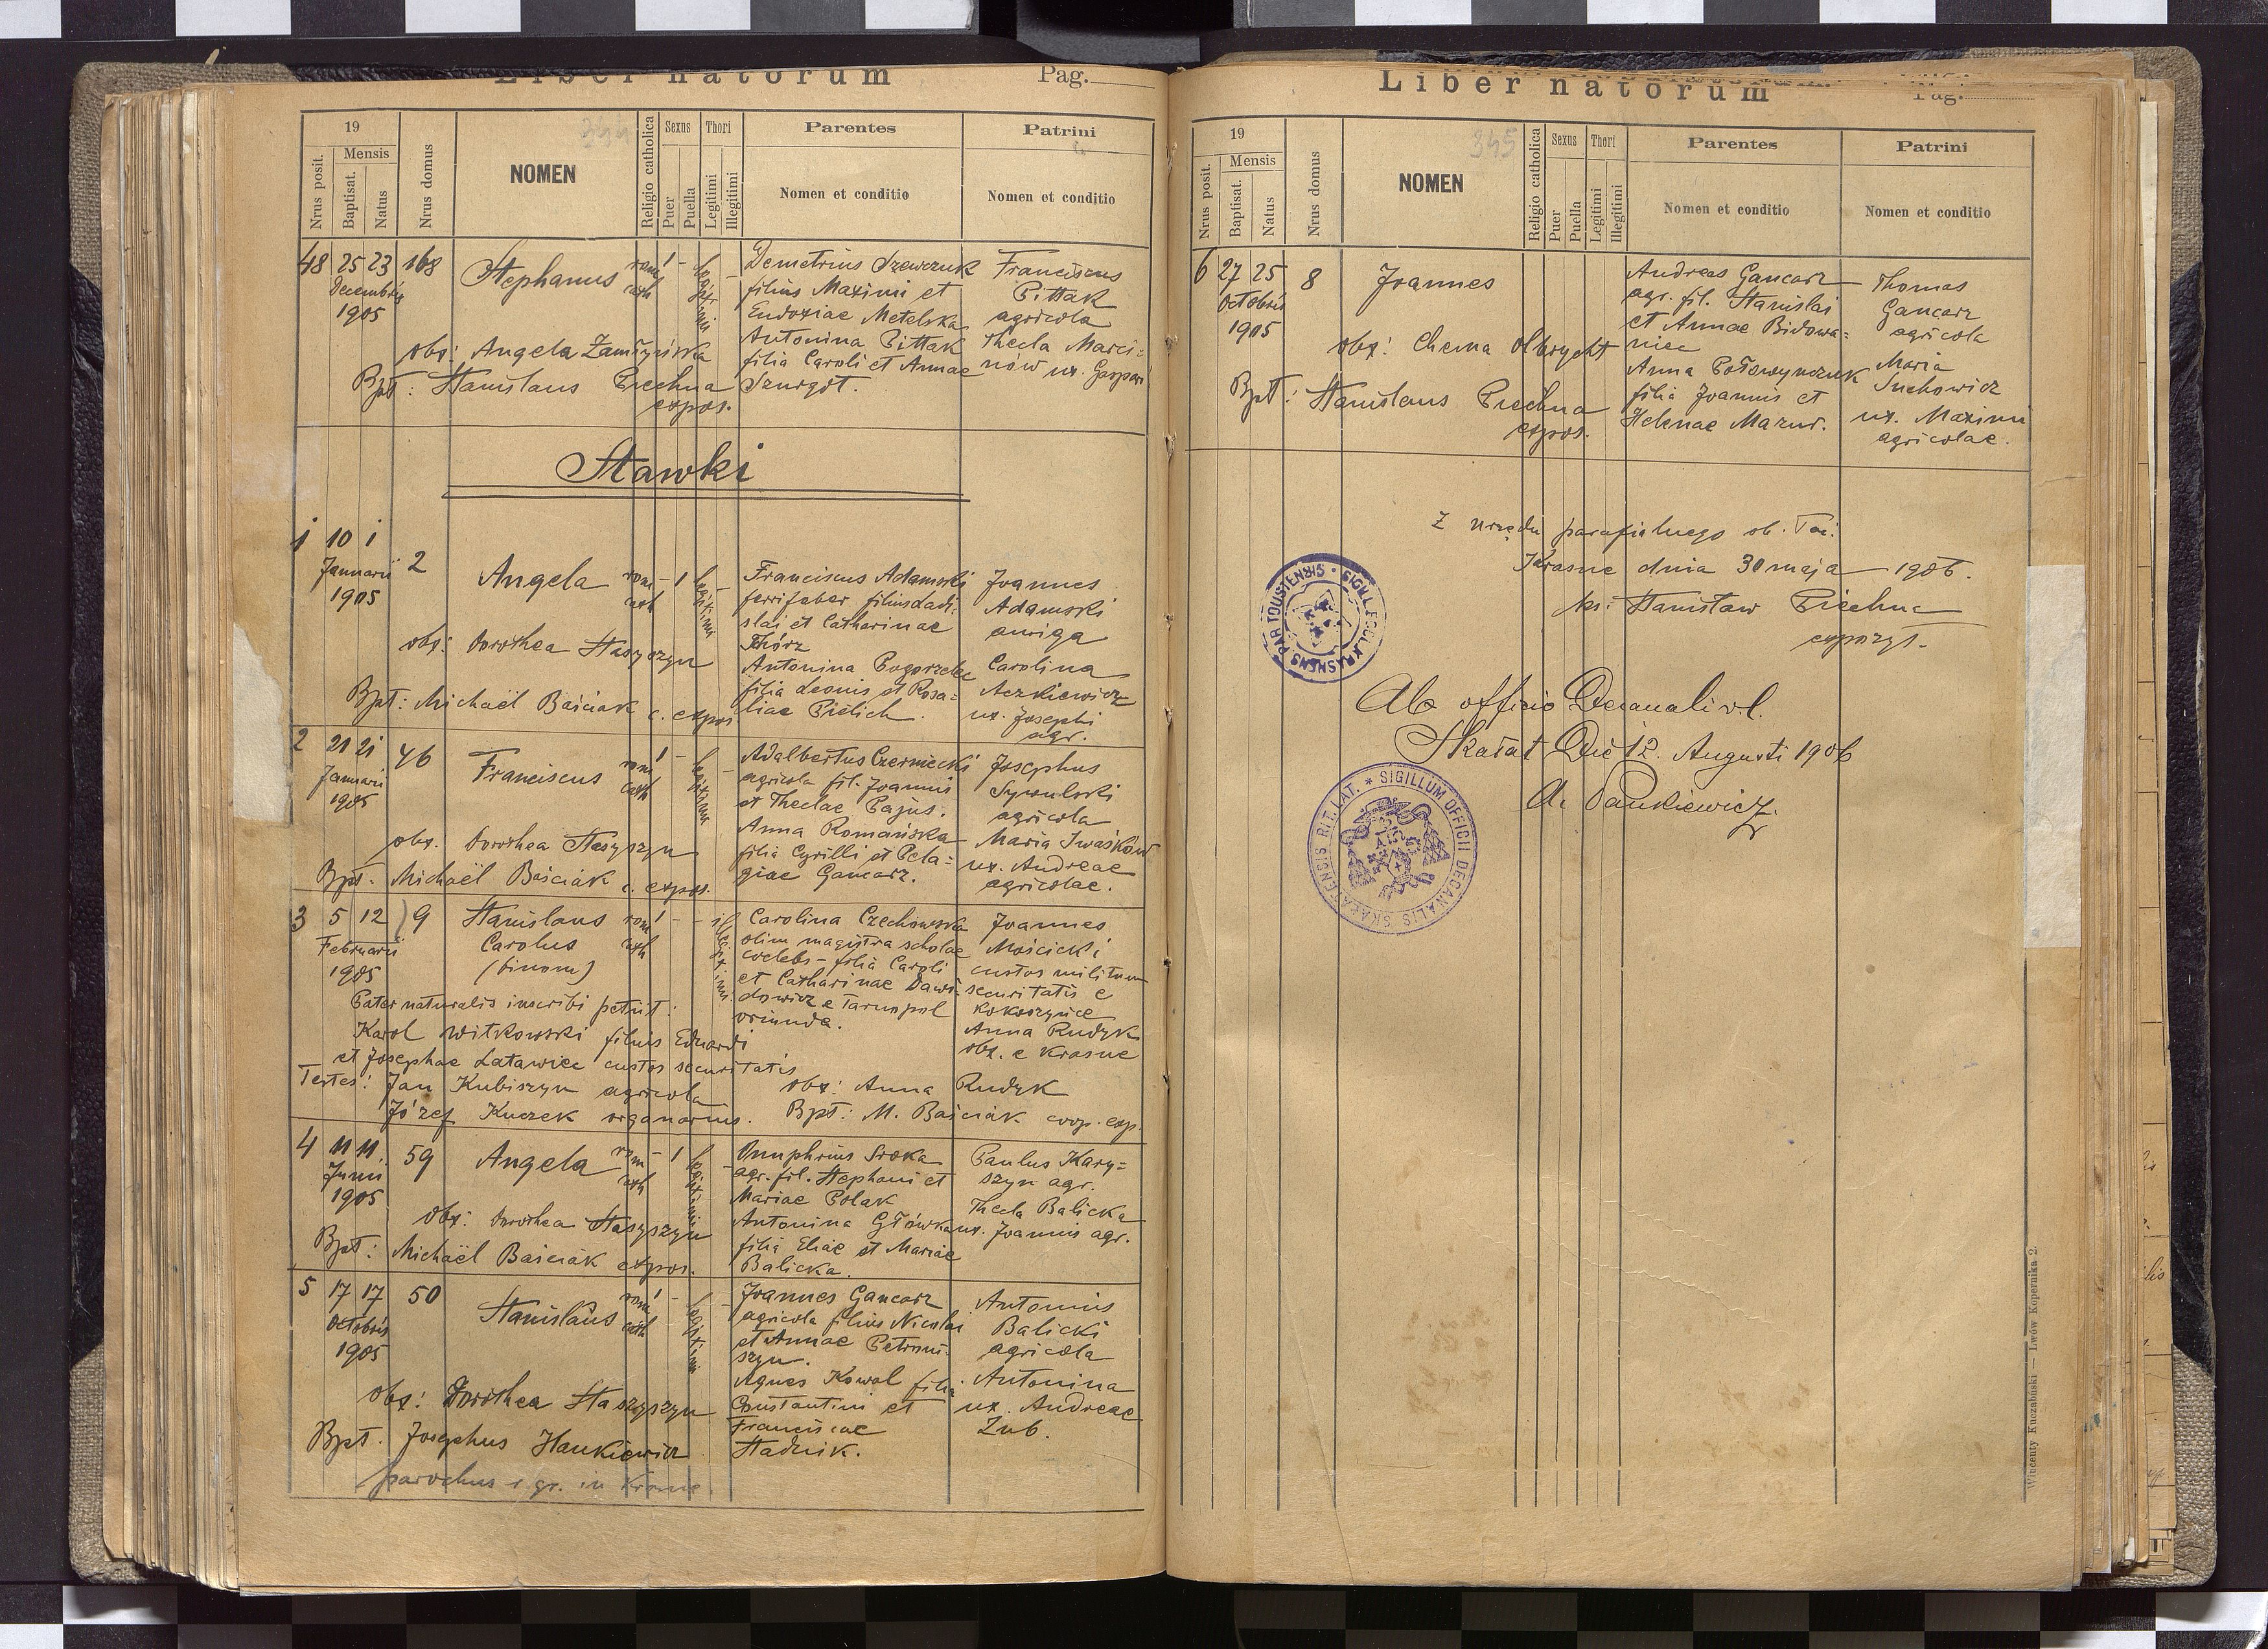 Liber natorum Pag.
344
19
Mensis
Nrus posit.
Baptisat.
Natus
Nrus domus
NOMEN
Religio catholica
Sexus
Puer
Puella
Thori
Legitimi
Illegitimi
Parentes
Nomen et conditio
Patrini
Nomen et conditio
48 25 23 168
Decembris
1905
Stephanus
rom 1 -
cath
legitimi
Demetrius Szewczuk
filius Maximi et
Eudoxiae Metelska
Antonina Pittak
filia Caroli et Annae
Szurgot.
Franciscus
Pittak
agricola
Thecla Marci-
nów ux. Gaspari
obs: Angela Zamłyńska
Bpt: Stanislaus Piechna
expos.
Stawki
1 10 1
Januarii
1905
2
Angela
rom - 1
cath
legitimi
Franciscus Adamski
ferrifaber filius Ladi-
slai et Catharinae
Thórz
Antonina Pogorzelec
filia Leonis et Rosa-
liae Pielich.
Joannes
Adamski
auriga
Carolina
Aczkiewicz
ux. Josephi
agr.
obs: Dorothea Stasyszyn
Bpt: Michaël Baściak c. expos.
2 21 21
Januarii
1905
46
Franciscus
rom 1 -
cath
legitimi
Adalbertus Czerniecki
agricola fil. Joannis
et Theclae Pajus.
Anna Romańska
filia Cyrilli et Pela-
giae Gancarz.
Josephus
Sywulski
agricola
Maria Iwaśków
ux. Andreae
agricolae.
obs. Dorothea Stasyszyn
Bpt. Michaël Baściak c. expos.
3 5 12
Februarii
1905
9
Stanislaus
Carolus
(binom)
rom 1 -
cath
illegitimi
Carolina Czechowska
olim magistra scholae
coelebs - filia Caroli
et Catharinae Dawi-
dowicz e Tarnopol
oriunda.
Joannes
Mościcki
custos militum
securitatis e
Kokoszyńce
Anna Rudyk
obs. e Krasne
Pater naturalis inscribi petiit:
Karol Witkowski filius Eduardi
et Josephae Latawiec custos securitatis
Testes: Jan Kubiszyn agricola
Józef Kuczek organarius.
obs: Anna Rudyk
Bpt: M. Baściak coop. exp.
4 11 11.
Junii
1905
59
Angela
rom - 1
cath
legitimi
Onuphrius Sroka
agr. fil. Stephani et
Mariae Polak
Antonina Główka
filia Eliae et Mariae
Balicka.
Paulus Kary-
szyn agr.
Thecla Balicka
ux. Joannis agr.
obs: Dorothea Stasyszyn
Bpt: Michaël Baściak expos.
5 17 17
Octobris
1905
50
Stanislaus
rom 1 -
cath
legitimi
Joannes Gancarz
agricola filius Nicolai
et Annae Petrani-
szyn.
Agnes Kowal filia
Constantini et
Franciscae
Stadnik.
Antonius
Balicki
agricola
Antonina
ux. Andreae
Zub.
obs: Dorothea Staszyszyn
Bpt. Josephus Hankiewicz
parochus r. gr. in Krasne.
Liber natorum Pag.
345
19
Mensis
Nrus posit.
Baptisat.
Natus
Nrus domus
NOMEN
Religio catholica
Sexus
Puer
Puella
Thori
Legitimi
Illegitimi
Parentes
Nomen et conditio
Patrini
Nomen et conditio
6 27 25
Octobris
1905
8
Joannes
Andreas Gancarz
agr. fil. Stanislai
et Annae Bidowa-
niec
Anna Połowynczuk
filia Joannis et
Helenae Mazur.
Thomas
Gancarz
agricola
Maria
Suchowicz
ux. Maximi
agricolae.
obs: Chema Olbrycht
Bpt: Stanislaus Piechna
expos.
Z urzędu parafialnego ob. łać.
Krasne dnia 30 maja 1906.
ks: Stanisław Piechna
expozyt.
SIGILL. ECCL. KRASNENS PAR TOUSTENSIS
Ab officio Decanali r. l.
Skałat Die 12. Augusti 1906
A. Pankiewicz.
* SIGILLUM OFFICII DECANALIS SKAŁATENSIS RIT. LAT.
Wincenty Kuczabiński — Lwów Kopernika 2.